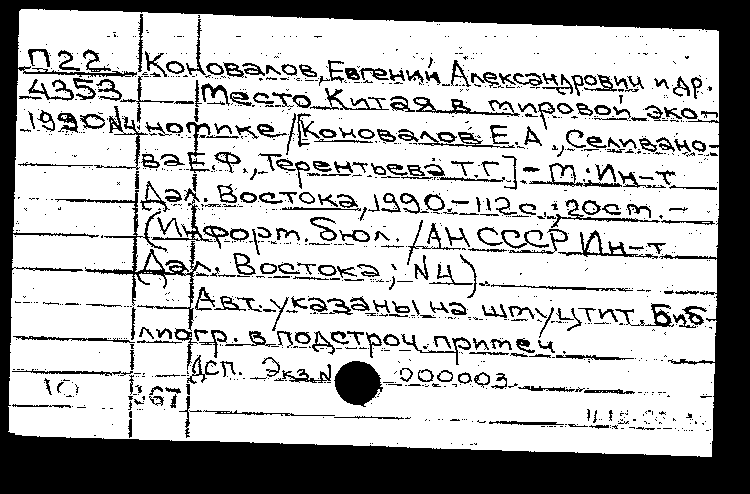 П22 Коновалов, Евгений Александрович и др.
4353 Место Китая в мировой эко-
1990 N4 номике / [Коновалов Е.А., Селивано-
ва Е.Ф., Терентьева Т.Г.] - М.: Ин-т
Дал. Востока, 1990. - 112 с.; 20 см. -
(Информ. бюл. / АН СССР Ин-т
Дал. Востока; N4).
Авт. указаны на шмуцтит. Биб-
лиогр. в подстроч. примеч.
ДСП. Экз. N 000003.
10 367